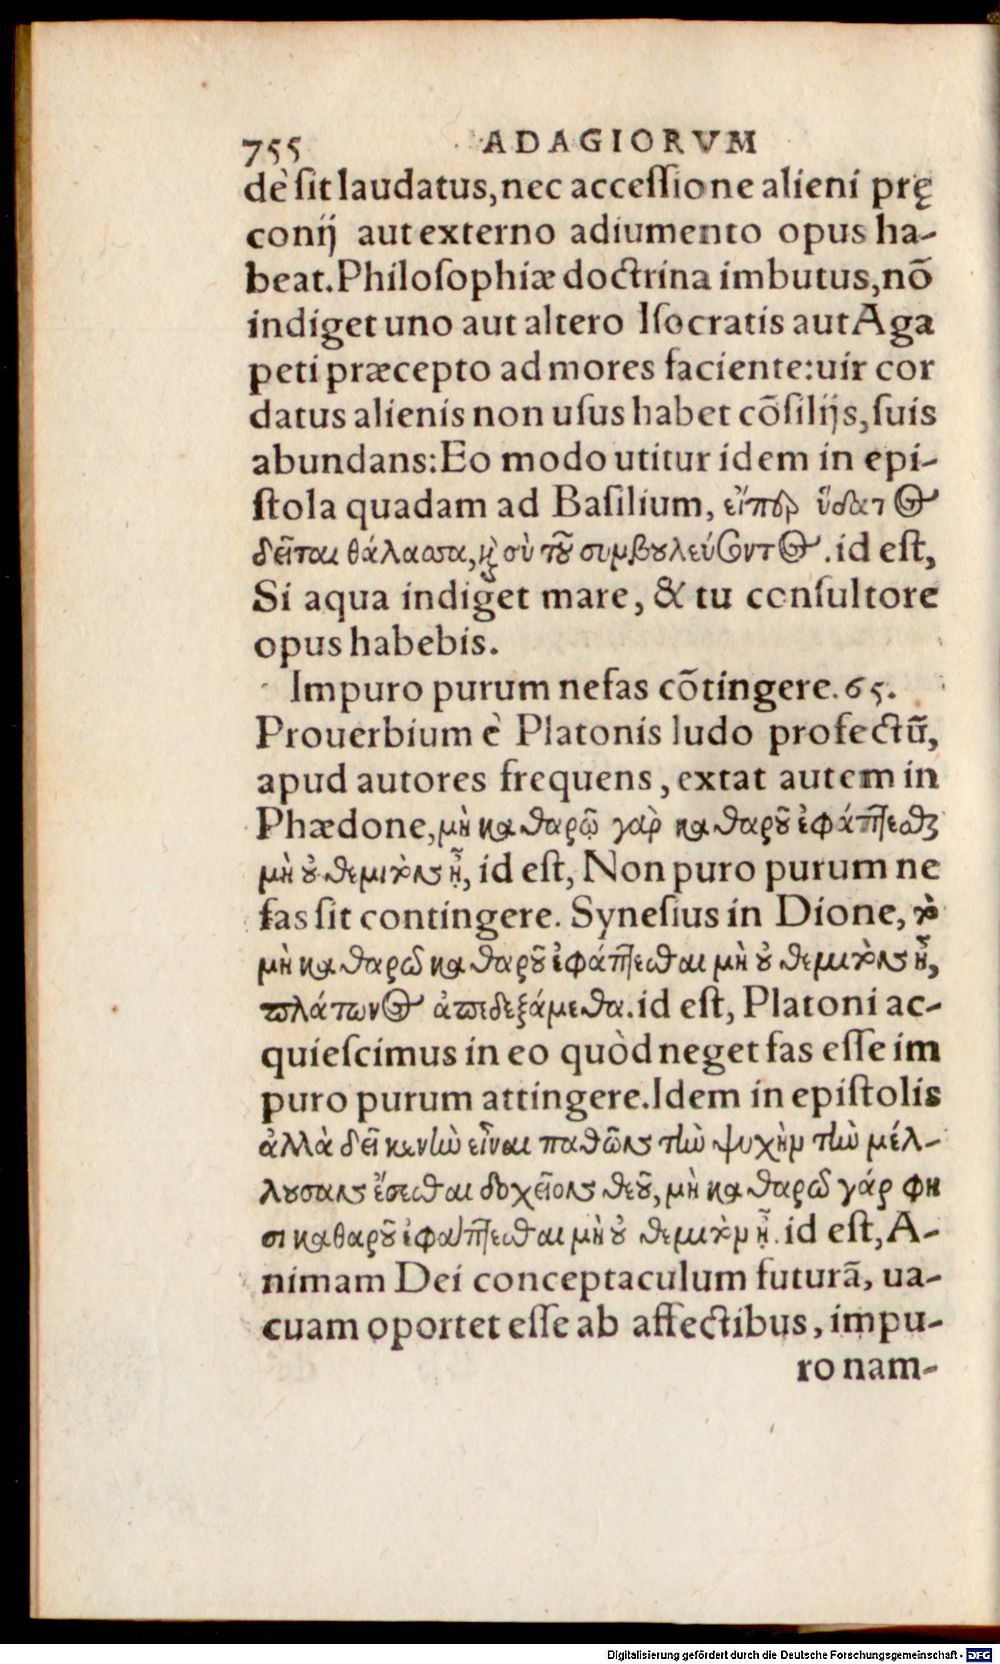 755 ADAGIORVM
dè sit laudatus, nec accessione alieni prę
conij aut externo adiumento opus ha-
beat. Philosophiæ doctrina imbutus, nõ
indiget uno aut altero Isocratis aut Aga
peti præcepto ad mores faciente: uir cor
datus alienis non usus habet cõsilijs, suis
abundans: Eo modo utitur idem in epi-
stola quadam ad Basilium, εἴπερ ὕδατος
δεῖται θάλασσα, καὶ σὺ τοῦ συμβουλεύσοντος. id est,
Si aqua indiget mare, & tu consultore
opus habebis.
Impuro purum nefas cõtingere. 65.
Prouerbium è Platonis ludo profectũ,
apud autores frequens, extat autem in
Phædone, μὴ καθαρῷ γὰρ καθαροῦ ἐφάπτεσθαι
μὴ οὐ θεμιτὸν ᾖ, id est, Non puro purum ne
fas sit contingere. Synesius in Dione, τὸ
μὴ καθαρῶ καθαροῦ ἐφάπτεσθαι μὴ οὐ θεμιτὸν ᾖ,
πλάτωνος ἀποδεξάμεθα. id est, Platoni ac-
quiescimus in eo quòd neget fas esse im
puro purum attingere. Idem in epistolis
ἀλλὰ δεῖ κενὴν εἶναι παθῶν τὴν ψυχὴν τὴν μέλ-
λουσαν ἔσεσθαι δοχεῖον θεοῦ, μὴ καθαρῶ γάρ φη
σι καθαροῦ ἐφάπτεσθαι μὴ οὐ θεμιτὸν ᾖ. id est, A-
nimam Dei conceptaculum futurã, ua-
cuam oportet esse ab affectibus, impu-
ro nam-
Digitalisierung gefördert durch die Deutsche Forschungsgemeinschaft - DFG